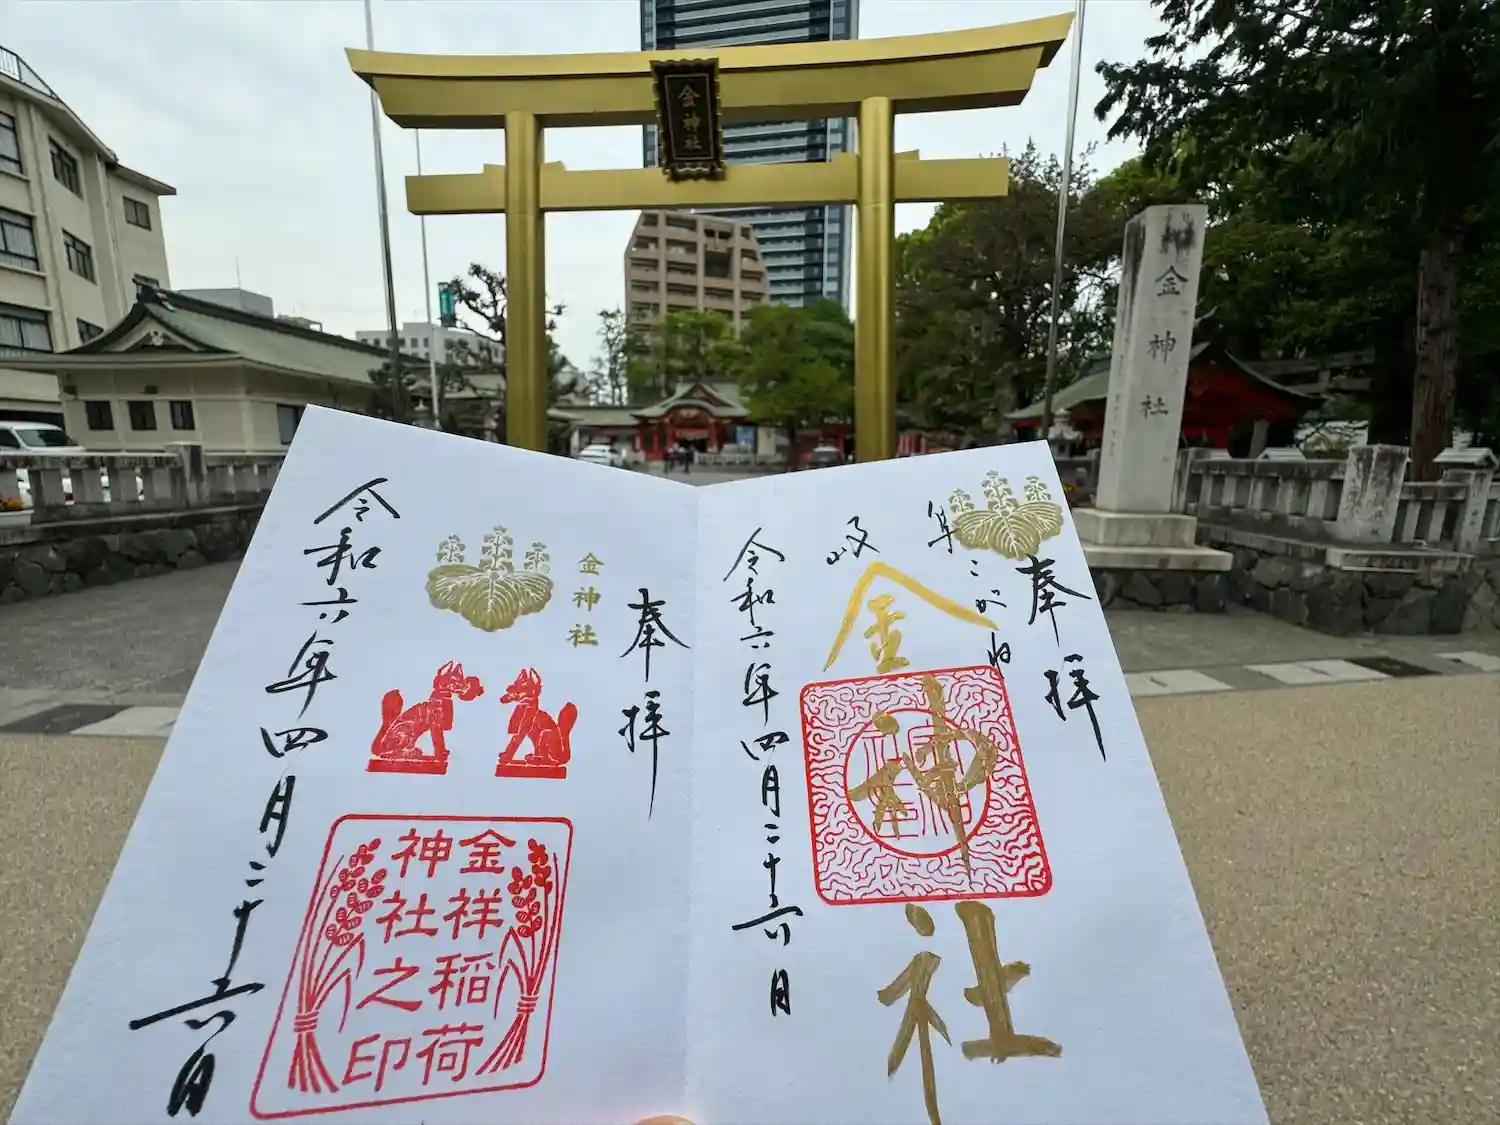 金神社
金神社
奉拝
岐阜
こがね
金神社
令和六年四月二十六日
奉拝
金神社
金祥稲荷
神社之印
令和六年四月二十六日